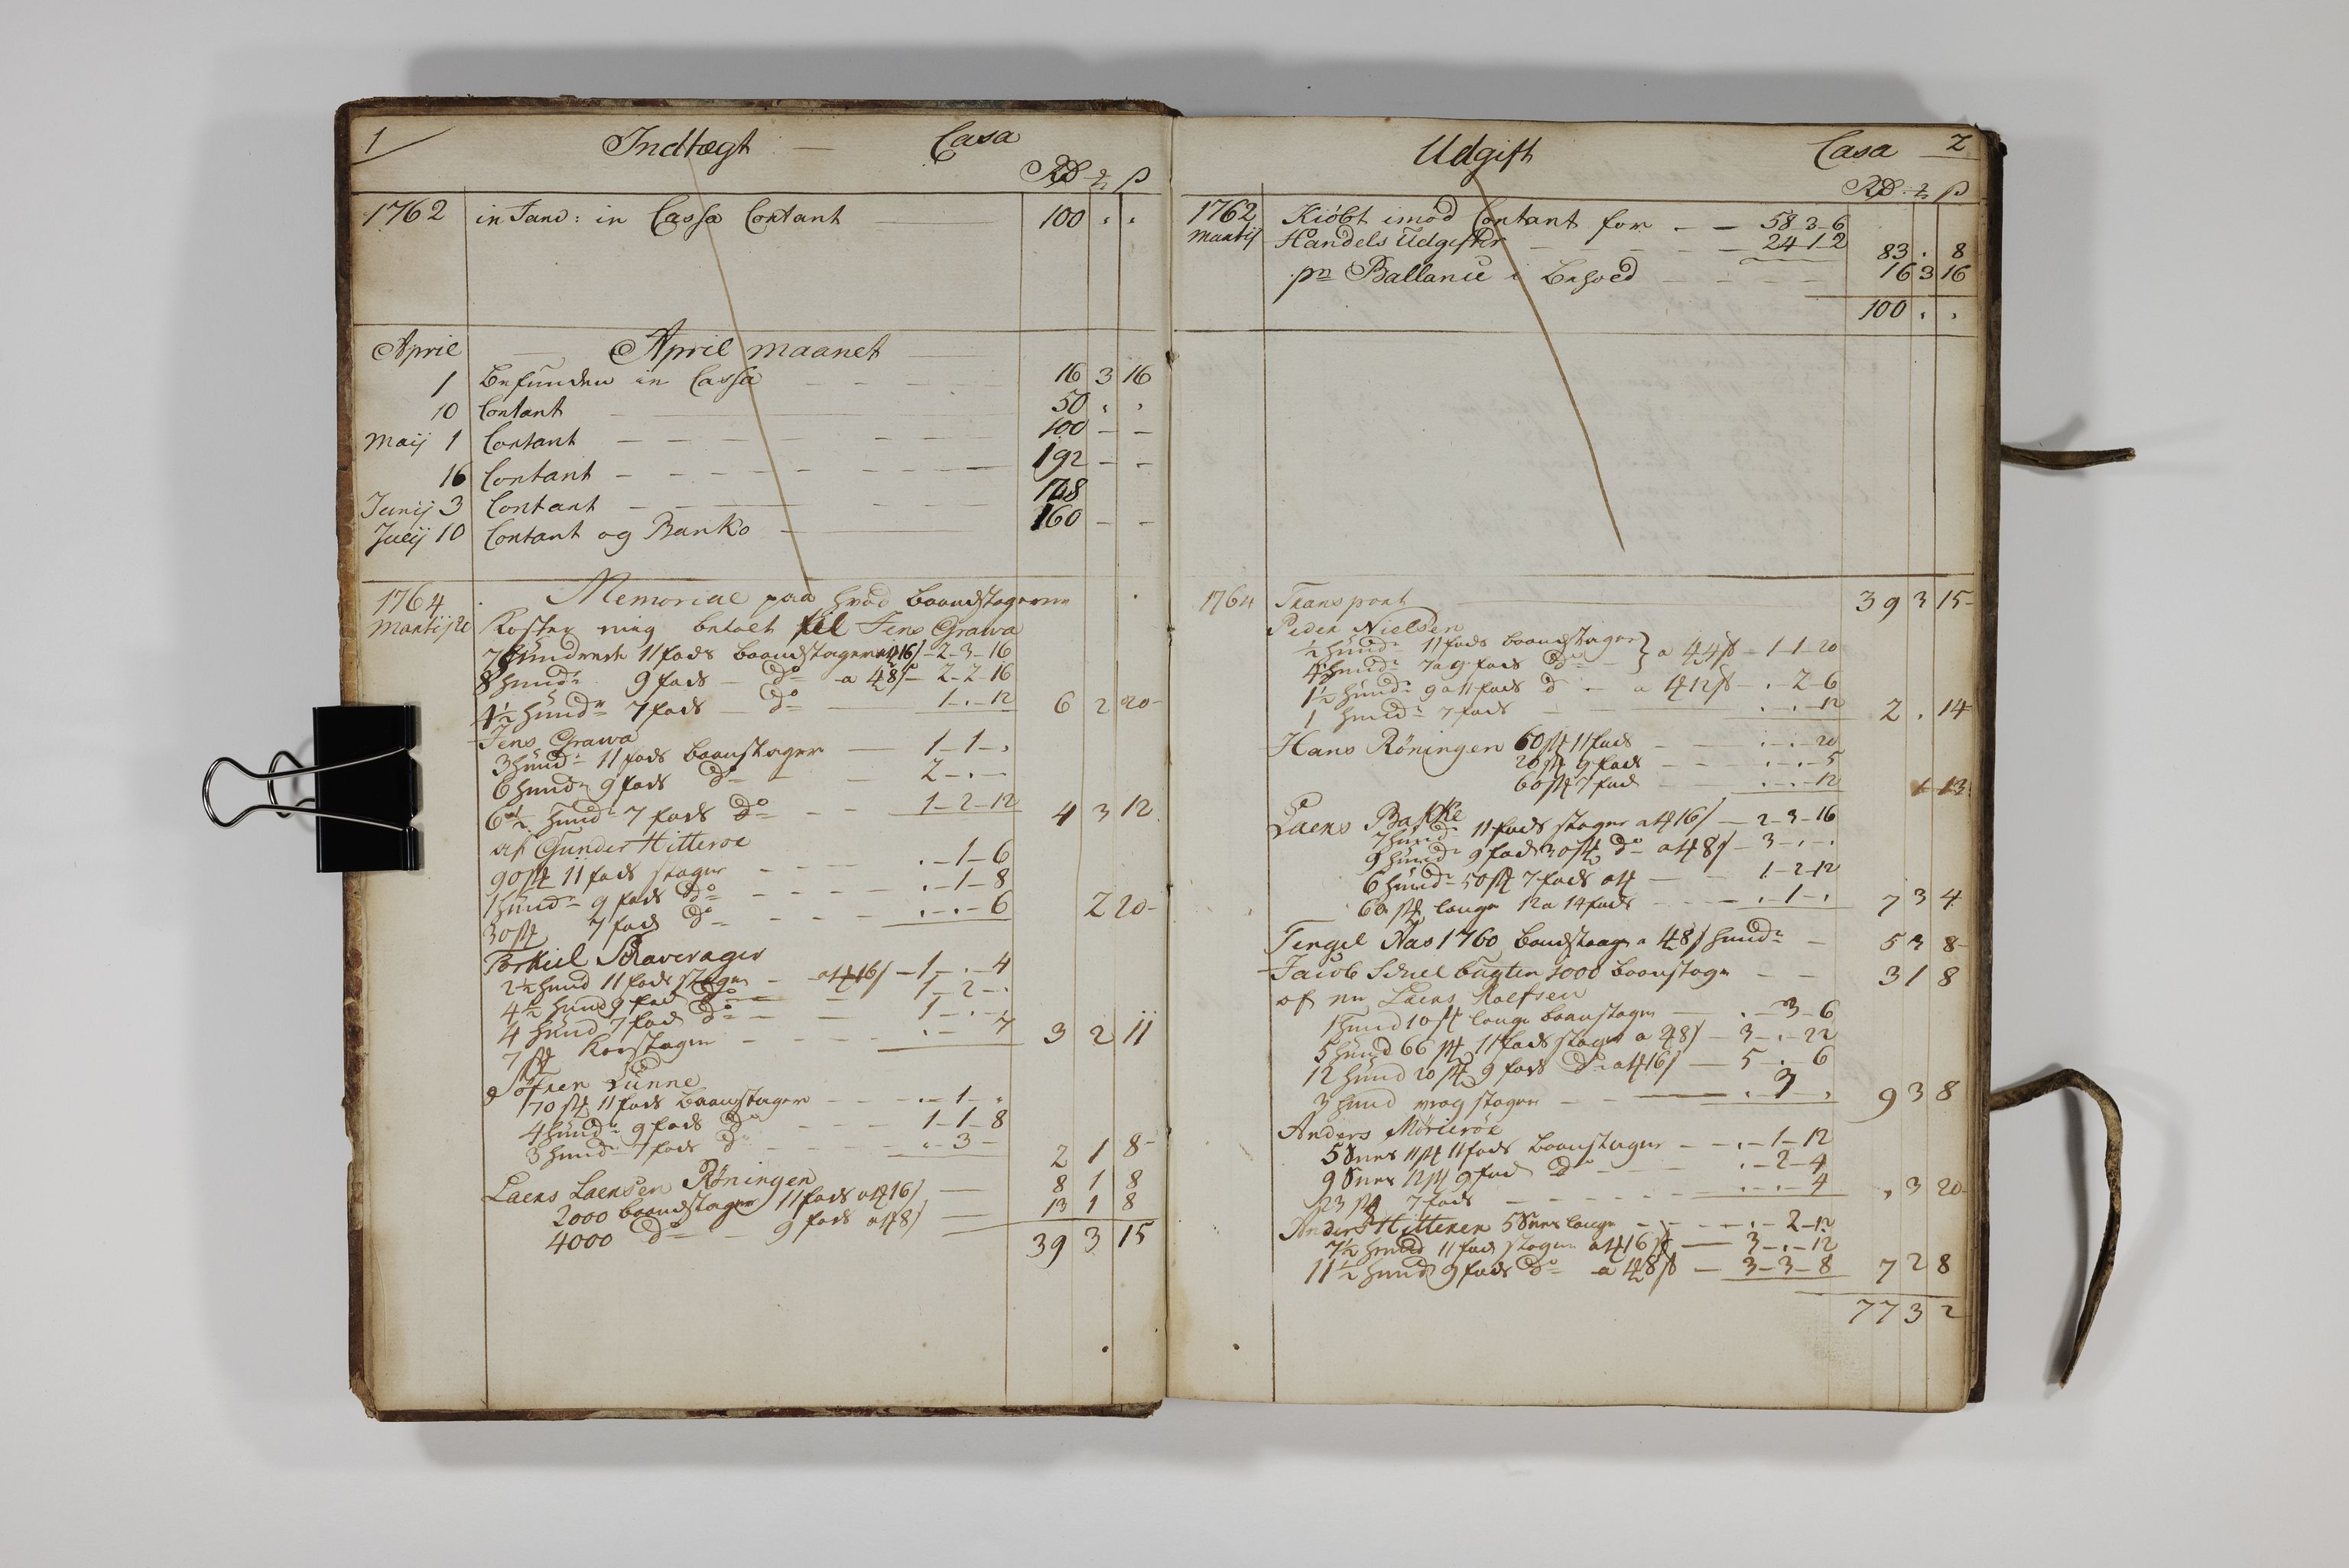 1 Indtægt — Casa
RD ß
1762 in Janv: in Cassa Contant 100 . .
April — April maanet
1 Befunden in Cassa 16 3 16
10 Contant 50 . .
Maij 1 Contant 100 — —
16 Contant 192 — —
Junij 3 Contant
Julij 10 Contant og Banko 160 — —
1764 Memorial paa hvad baandstagerne
Martij Koster mig betalt til Jens Grawa
7 hundrede 11 fads baandstager a 16/ - 2-3-16
8 hund 9 fads — do a 8/ - 2-2-16
4½ hund 7 fads — do — 1-.-12 6 2 20
Jens Grawa
3 hund 11 fads baanstager — 1-1-.
6 hund 9 fads do — 2-.-
6½ hund 7 fads do — 1-2-12 4 3 12
af Gunder Hitterøe
90 st 11 fads stager .-1-6
1 hund 9 fads do .-1-8
30 st 7 fads do .-.-6 2 20
Torkiel
2½ hund 11 fads stager a 16/ - 1-.-4
4½ hund 9 fad do — 1-2-.
4 hund 7 fad do — 1-.-
7 st stager .-.-7 3 2 11
Søfren Lunne
70 st 11 fads baanstager .-1-.
4 hund 9 fads do 1-1-8
3 hund 7 fads do .-3- 2 1 8
Laers Laersen Røningen
2000 baandstager 11 fads a 16/ — 8 1 8
4000 do — 9 fads a 8/ — 13 1 8
39 3 15
Udgift Casa 2
RD ß
1762 Kiöbt imod Contant for — 58-3-6
Martij Handels Udgifter — 24-1-2 83 . 8
pr Ballance i Behold 16 3 16
100 . .
1764 Transport 39 3 15
Peder Nielsen
½ hund 11 fads baandstager } a 4/ - 1-1-20
4 hund 7 a 9 fads do
1½ hund 9 a 11 fads d — a 12ß - .-2-6
1 hund 7 fads .-.-12 2 . 14
Hans Røningen 60 st 11 fads .-.-20
20 st 9 fads .-.-5
60 st 7 fad .-.-12 1 13
Laers Bakke
7 hund 11 fads stager a 16/ - 2-3-16
9 hund 9 fads 30 st do a 8/ - 3-.-.
6 hund 50 st 7 fads 1-2-12
60 st lange 12 a 14 fads .-1-. 7 3 4
Tengel Aas 1760 baudstager a 8/ hund — 5 3 8
Jacob bugten 1000 baanstage — 3 1 8
af Laers Roelfsen
1 hund 10 st lange baanstager — .-3-6
5 hund 66 st 11 fads stager a 8/ - 3-.-22
12 hund 20 st 9 fads do a 16/ - 5-.-6
3 hund vrag stager .-3-. 9 3 8
Anders
5 Snes 11 st 11 fads baanstager - .-1-12
9 Snes 12 st 9 fad do .-2-4
23 st 7 fads .-.-4 . 3 20
Anders Hitteren 5 Snes lange .-2-12
7½ hund 11 fad stager a 16ß — 3-.-12
11½ hund 9 fads do a 8ß — 3-3-8 7 2 8
77 3 2